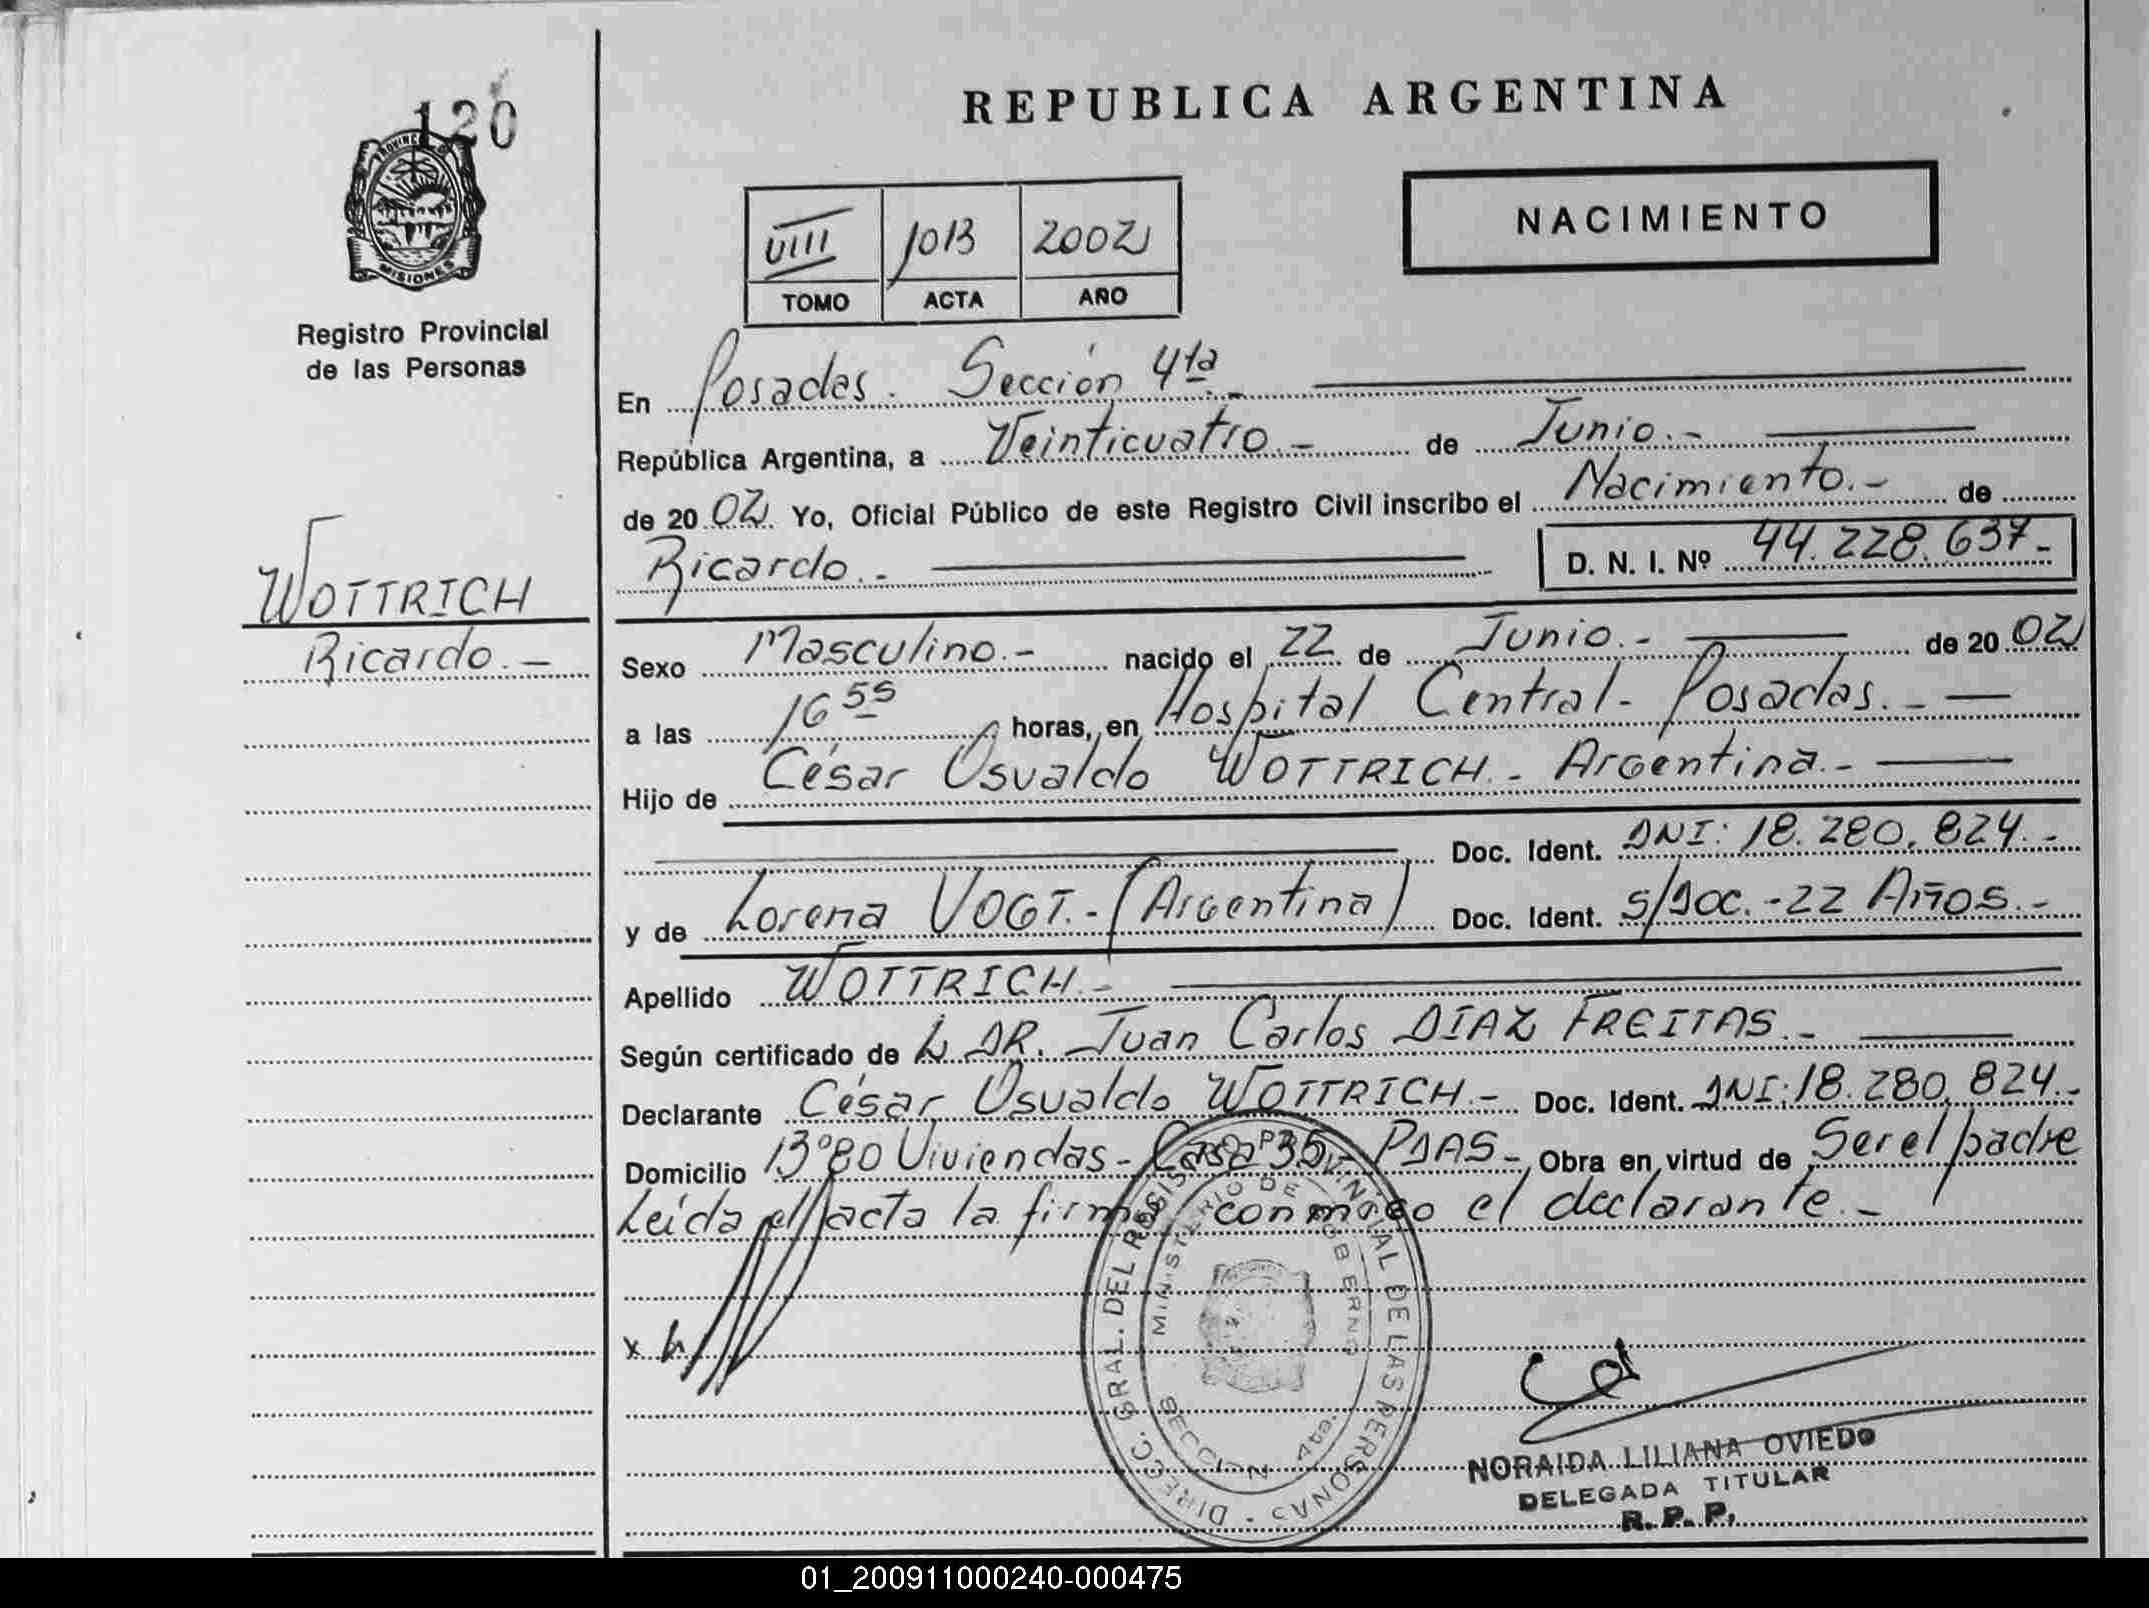 120
REPUBLICA ARGENTINA
PROVINCIA DE
MISIONES
Registro Provincial
de las Personas
NACIMIENTO
VIII 1013 2002
TOMO ACTA AÑO
En Posadas. Sección 4ta.-
República Argentina, a Veinticuatro.- de Junio.-
de 2002. Yo, Oficial Público de este Registro Civil inscribo el Nacimiento.- de
Ricardo.- D. N. I. Nº 44.228.637-
WOTTRICH
Ricardo.-
Sexo Masculino.- nacido el 22 de Junio.- de 2002
a las 16 55 horas, en Hospital Central- Posadas.-
Hijo de César Osvaldo WOTTRICH.- Argentina.-
Doc. Ident. DNI: 18.280.824.-
y de Lorena VOGT.- (Argentina) Doc. Ident. S/Doc.-22 Años.-
Apellido WOTTRICH.-
Según certificado de L DR. Juan Carlos DÍAZ FREITAS.-
Declarante César Osvaldo WOTTRICH.- Doc. Ident. DNI:18.280.824.-
Domicilio Bº80 Viviendas- Casa 35,- PDAS- Obra en virtud de Ser el padre
Leída el acta la firma conmigo el declarante.-
x
DIRECC. GRAL. DEL REGISTRO PROVINCIAL DE LAS PERSONAS
MINISTERIO DE GOBIERNO
SECCION 4ta.
NORAIDA LILIANA OVIEDO
DELEGADA TITULAR
R. P. P.
01_200911000240-000475